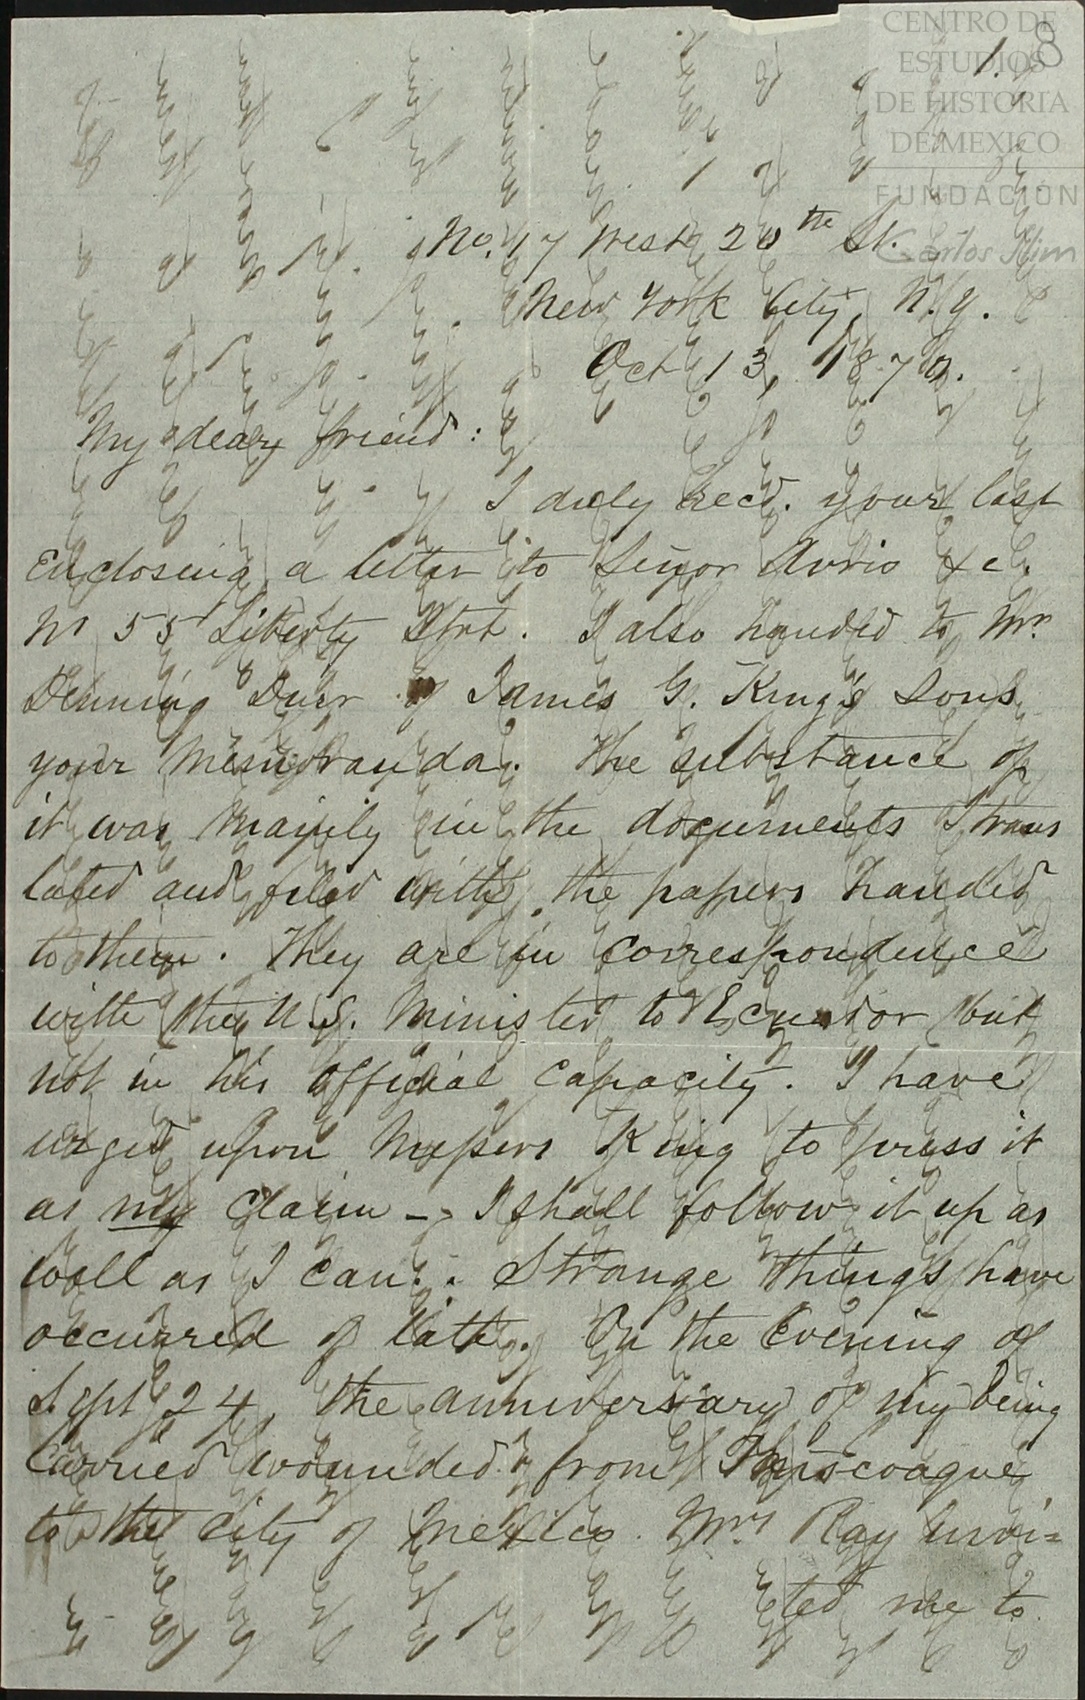 CENTRO DE
ESTUDIOS
DE HISTORIA
DE MEXICO
FUNDACIÓN
Carlos Slim
1. 8
No. 17 West 20th St.
New York City, N.Y.
Oct 13, 1870.
My dear friend:
I duly recd. your last
enclosing a letter to Señor &c.
No 55 Liberty Strt. I also handed to Mr.
Denning Duer of James G. King's Sons
your memoranda. The substance of
it was mainly in the documents I trans
lated and filed with the papers handed
to them. They are in correspondence
with the U.S. Minister to Ecuador but
not in his official capacity. I have
urged upon Messrs King to press it
as my claim — I shall follow it up as
well as I can. Strange things have
occurred of late. On the evening of
Sept 24, the anniversary of my being
carried wounded from
to the city of Mexico. Mrs Ray invi=
ted me to